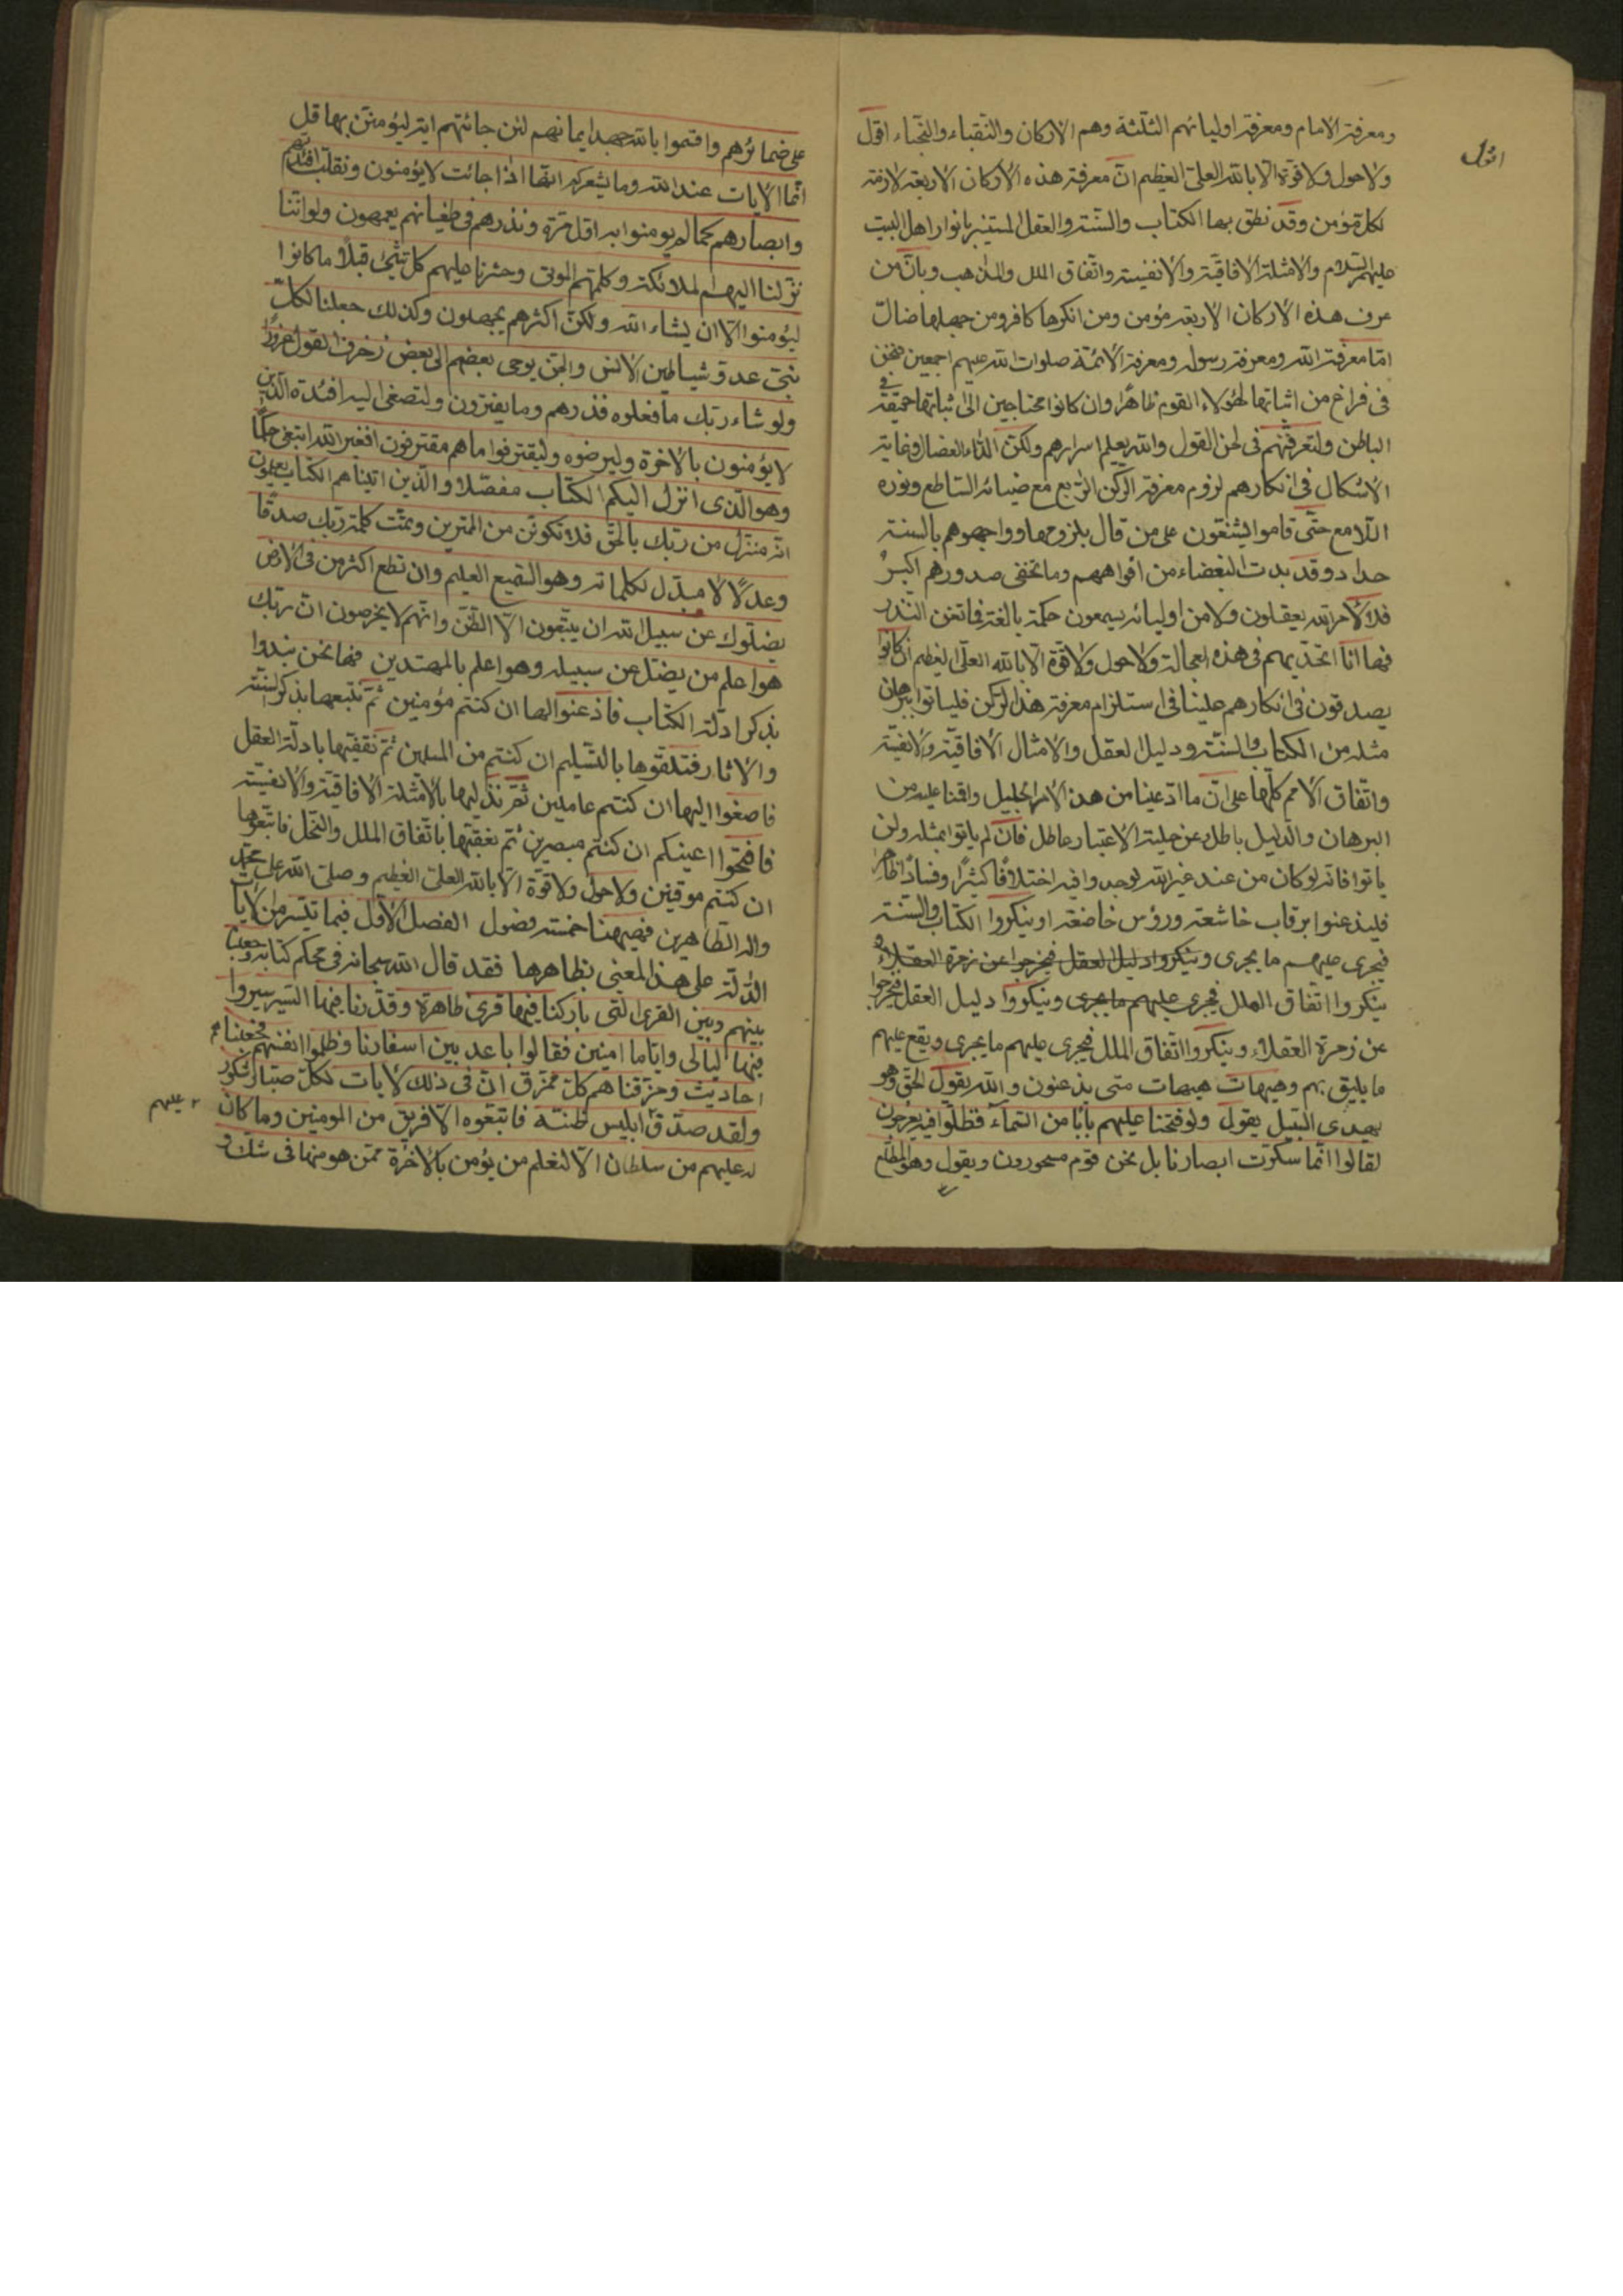 ومعرفة الامام ومعرفة اوليائهم الثلثة وهم الاركان والنقباء والنجباء اقول
اقول
ولا حول ولا قوة الا بالله العلى العظيم انّ معرفة هذه الاركان الاربعة لازمة
لكل مؤمن وقد نطق بها الكتاب والسنة والعقل المستنير بانوار اهل البيت
عليهم السلام والامثلة الافاقية والانفسية واتفاق الملل والمذاهب وبانّ من
عرف هذه الاركان الاربعة مؤمن ومن انكرها كافر ومن جهلها ضالّ
امّا معرفة الله ومعرفة رسوله ومعرفة الائمة صلوات الله عليهم اجمعين فنحن
فى فراغ من اثباتها لهؤلاء القوم ظاهرًا وان كانوا محتاجين الى اثباتها حقيقة فى
الباطن ولتعرفنّهم فى لحن القول والله يعلم اسرارهم ولكن الداء العضال وغاية
الاشكال فى انكارهم لزوم معرفة الركن الرابع مع ضيائه الساطع ونوره
اللامع حتّى قاموا يشنّعون على من قال بلزومها وواجهوهم بالسنة
حداد وقد بدت البغضاء من افواههم وما تخفى صدورهم اكبر
فلا لامر الله يعقلون ولا من اوليائه يسمعون حكمة بالغة فما تغن النذر
فها انا اتحدّيهم فى هذه العجالة ولا حول ولا قوة الا بالله العلىّ العظيم ان كانوا
يصدقون فى انكارهم علينا فى استلزام معرفة هذا الركن فلياتوا ببرهان
مثله من الكتاب والسنّة ودليل العقل والامثال الافاقيّة والانفسيّة
واتّفاق الامم كلّها على انّ ما ادّعينا من هذا الامر الجليل واقمنا عليه من
البرهان والدليل باطل وعن حلية الاعتبار عاطل فان لم ياتوا بمثله ولن
ياتوا فانه لو كان من عند غير الله لوجدوا فيه اختلافًا كثيرًا وفسادًا ظاهرًا
فليذعنوا برقاب خاشعة ورؤس خاضعة او ينكروا الكتاب والسنة
فيجرى عليهم ما يجرى وينكروا دليل العقل فيخرجوا عن زمرة العقلاء و
ينكروا اتفاق الملل فيجرى عليهم ما يجرى وينكروا دليل العقل فيخرجوا
عن زمرة العقلاء وينكروا اتفاق الملل فيجرى عليهم ما يجرى ويقع عليهم
ما يليق بهم وهيهات هيهات متى يذعنون والله يقول الحقّ وهو
يهدى السبيل يقول ولو فتحنا عليهم بابًا من السمآء فظلّوا فيه يعرجون
لقالوا انّما سكّرت ابصارنا بل نحن قوم مسحورون ويقول وهو المطّلع
على ضمائرهم واقسموا بالله جهد ايمانهم لئن جائتهم اية ليؤمننّ بها قل
انّما الايات عند الله وما يشعركم انّها اذا جائت لا يؤمنون ونقلّب افئدتهم
وابصارهم كما لم يومنوا به اوّل مرّة ونذرهم فى طغيانهم يعمهون ولو انّنا
نزّلنا اليهم الملائكة وكلّمهم الموتى وحشرنا عليهم كل شىء قبلًا ما كانوا
ليؤمنوا الّا ان يشاء الله ولكنّ اكثرهم يجهلون وكذلك جعلنا لكلّ
نبىّ عدوّ شياطين الانس والجنّ يوحى بعضهم الى بعض زخرف القول غرورًا
ولو شاء ربّك ما فعلوه فذرهم وما يفترون ولتصغى اليه افئدة الّذين
لا يؤمنون بالاخرة وليرضوه وليقترفوا ما هم مقترفون افغير الله ابتغى حكمًا
وهو الّذى انزل اليكم الكتاب مفصّلا والّذين اتيناهم الكتاب يعلمون
انّه منزّل من ربّك بالحقّ فلا تكوننّ من الممترين وتمّت كلمة ربّك صدقًا
وعدلًا لا مبدّل لكلماته وهو السّميع العليم وان تطع اكثر من فى الارض
يضلّوك عن سبيل الله ان يتّبعون الّا الظنّ وانّهم لا يخرصون انّ ربّك
هو اعلم من يضلّ عن سبيله وهو اعلم بالمهتدين فها نحن نبدوا
بذكر ادلّة الكتاب فاذعنوا لها ان كنتم مؤمنين ثمّ نتبعها بذكر السنّة
والاثار فتلقّوها بالتسليم ان كنتم من المسلمين ثمّ نقفّيها بادلّة العقل
فاصغوا اليها ان كنتم عاملين ثمّ نذيلها بالامثلة الافاقيّة والانفسيّة
فافتحوا اعينكم ان كنتم مبصرين ثم نعقبها باتّفاق الملل والنحل فاتبعوها
ان كنتم موقنين ولا حول ولا قوّة الّا بالله العلىّ العظيم وصلّى الله على محمّد
واله الطاهرين فهيهنا خمسة فصول الفصل الاوّل فيما تيسّر من الايات
الدالّة على هذا المعنى بظاهرها فقد قال الله سبحانه فى محكم كتابه وجعلنا
بينهم وبين القرى الّتى باركنا فيها قرى ظاهرة وقدّرنا فيها السّير سيروا
فيها ليالى وايّاما امنين فقالوا باعد بين اسفارنا وظلموا انفسهم فجعلناهم
احاديث ومزّقناهم كلّ ممزّق انّ فى ذلك لايات لكلّ صبّار شكور
ولقد صدّق ابليس ظنّه فاتبعوه الّا فريق من المومنين وما كان
عليهم
له عليهم من سلطان الّا لنعلم من يؤمن بالاخرة ممّن هو منها فى شكّ و